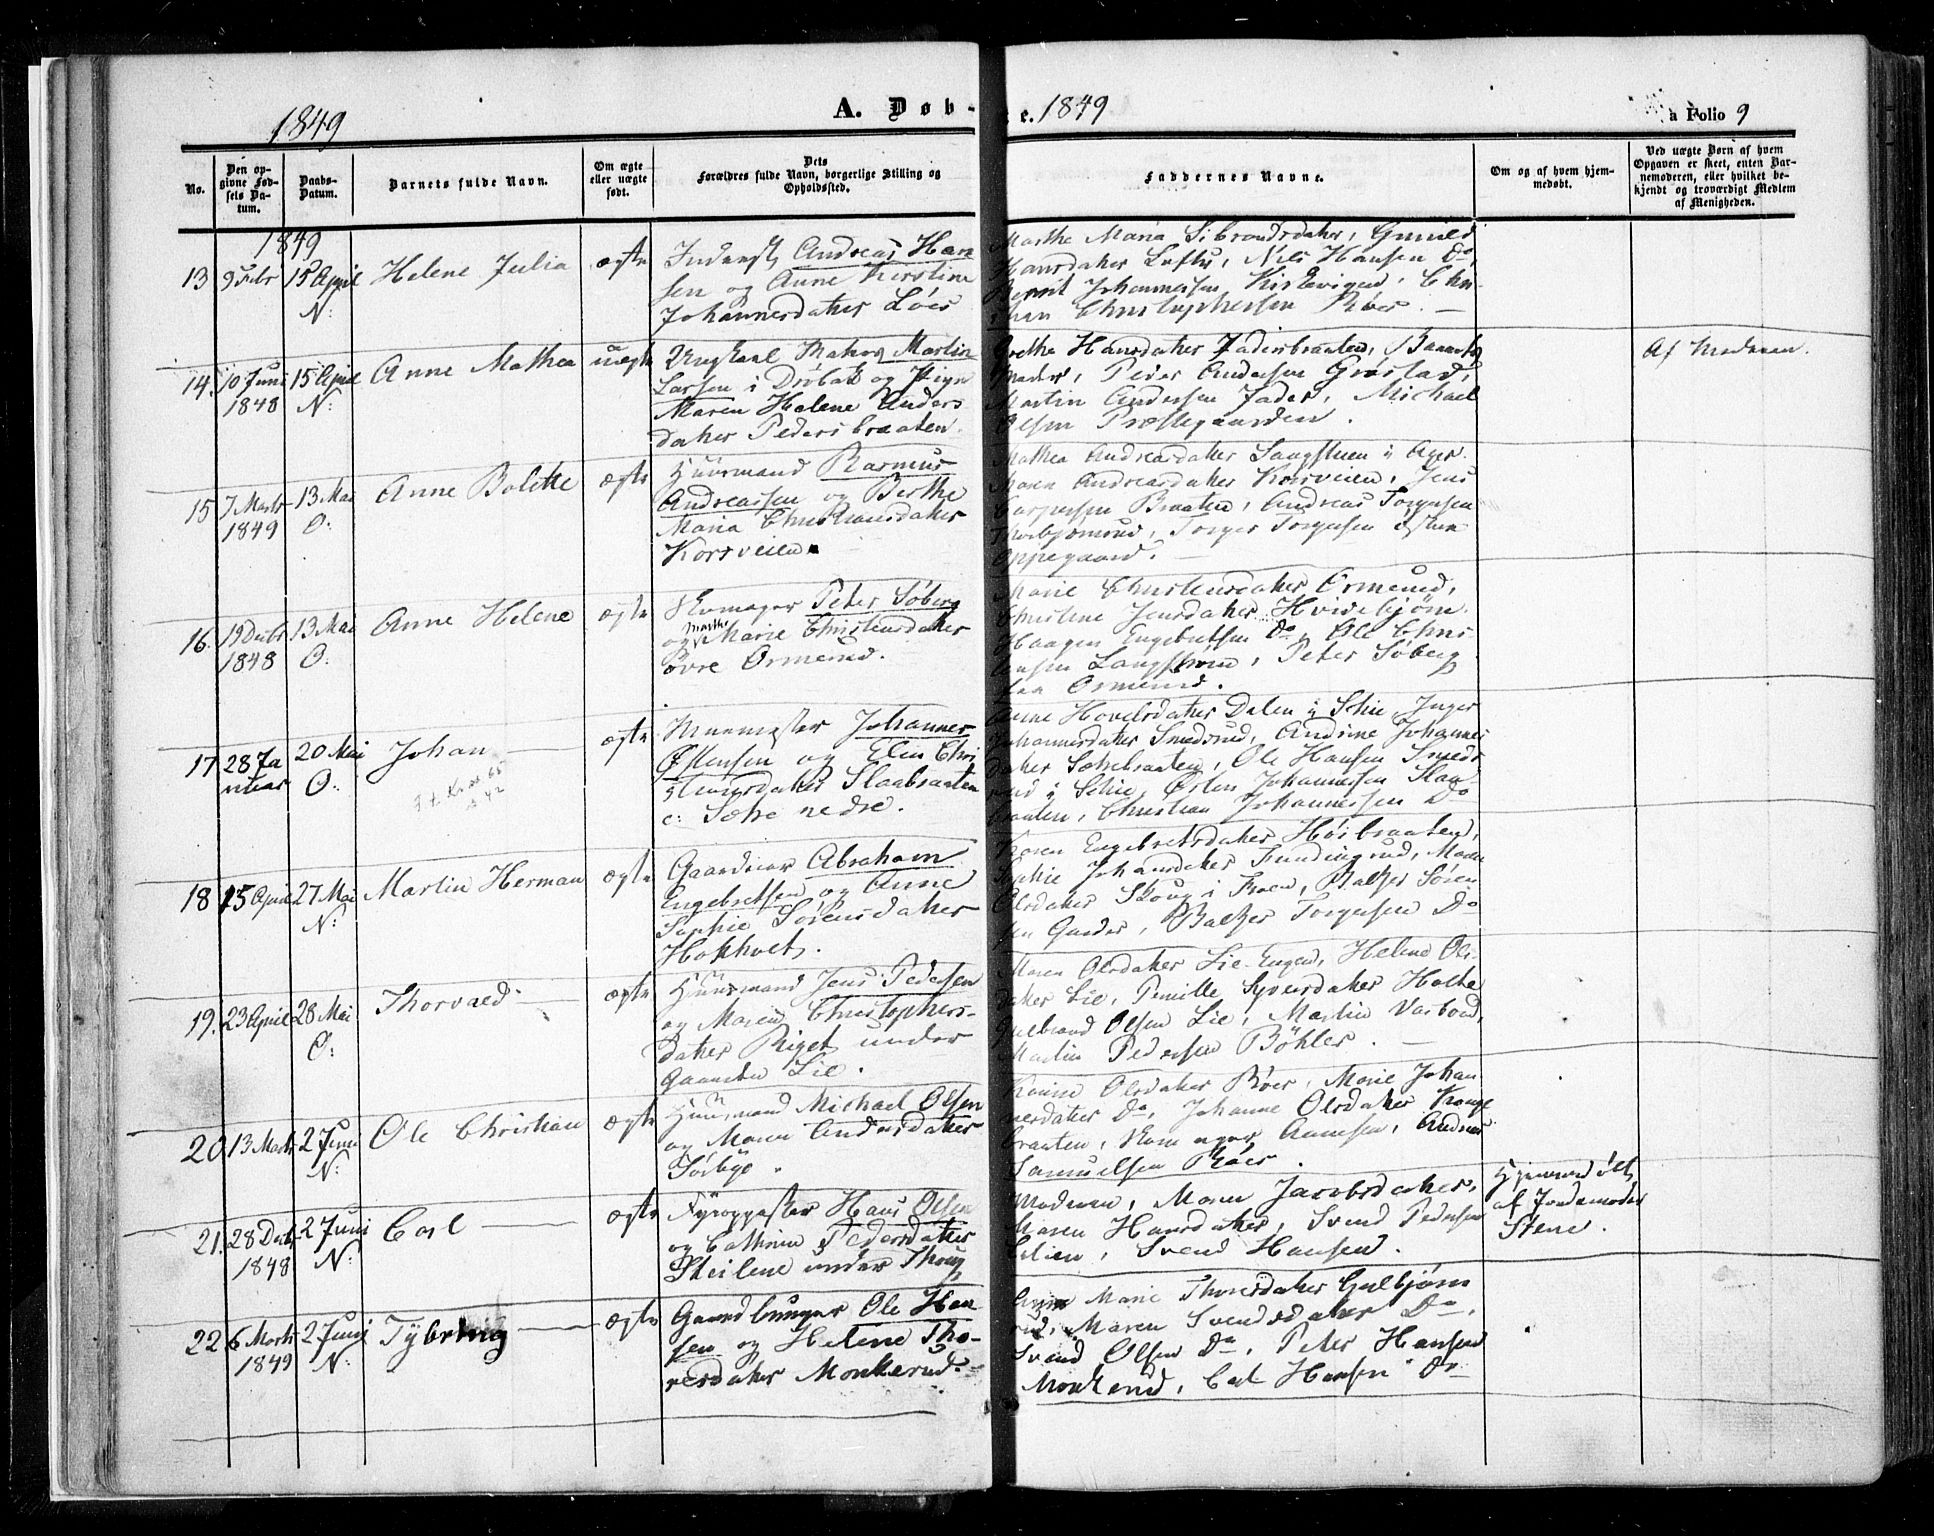 1849
A. Døb-
e. 1849
a Folio 9
No.
Den op-
givne Fød-
sels Da-
tum.
Daabs-
Datum.
Barnets fulde Navn.
Om ægte
eller uægte
født.
Dets
Forældres fulde Navn, borgerlige Stilling og
Opholdssted.
Faddernes Navne.
Om og af hvem hjem-
medøbt.
Ved uægte Børn af hvem
Opgaven er skeet, enten Bar-
nemoderen, eller hvilket be-
kjendt og troværdigt Medlem
af Menigheden.
1849
13
9 Febr
15 April
N:
Helene Julia
ægte
Inderst Andreas Han
sen og Anne Kirstine
Johannesdatter Löes
Marthe Maria Sibrandsdatter, Gunild
Hansdatter Lofts, Nils Hansen Do,
Johannesen, Chri-
Christophersen Röer. —
14.
10 Juni
1848
15 April
N:
Anne Mathea
uægte
Ungkarl Matros Martin
Larsen i Dröbak og Pigen
Maren Helene Anders
datter Pedersbraaten.
Grethe Hansdatter Pedersbraaten,
Peder Andersen
Martin Andersen Jader, Michael
Olsen Præstegaarden.
Af Moderen.
15
7 Marts
1849
13 Mai
O:
Anne Bolette
ægte
Huusmand Rasmus
Andreassen og Berthe
Maria Christiansdatter
Korsveien
Mathea Andreasdatter Langsteen i Ager.
Maren Andreasdatter Korsveien, Jens
Caspersen Braaten, Andreas Torgersen
Torger Torgersen Østre
Oppegaard. —
16.
19 Decbr
1848
13 Mai
O:
Anne Helene
ægte
Skomager Peter Söberg
og Marthe Marie Christensdatter
övre Ormerud.
Marie Christensdatter Ormerud,
Christine Jensdatter Hvidebjörn
Haagen Engebretsen Do, Ole Chris
tensen Langstrøm, Peter Söberg
Ormerud.
17
28 Ja
nuar
20 Mai
O:
Johan —
ægte
Muurmester Johannes
Østensen og Elen Chri
stensdatter Slaabraaten
c: Sætre nedre.
Anne Hovelsdatter Dalen i Schie, Inger
Johannesdatter Smedsrud, Andrine Johannes
datter Sætrebraaten, Ole Hansen Smeds
rud i Schie, Østen Johannesen Slaa
braaten, Christian Johannesen Do
18
15 April
27 Mai
N:
Martin Herman
ægte
Gaardeier Abraham
Engebretsen og Anne
Sophie Sörensdatter
Hokholt.
Karen Engebretsdatter Höibraaten,
Sophie Johansdatter Fundingrud, Maren
Olsdatter Skoug i Froen, Baltzer Sören
sen Garder, Baltzer Torgersen Do
19.
23 April
28 Mai
O:
Thorvald —
ægte
Huusmand Jens Pedersen
og Maren Christophers-
datter Riget under
Gaarden Lie.
Maren Olsdatter Lie-Engen, Helene Ols
datter Lie, Pernille Syversdatter Holte
Gulbrand Olsen Lie, Martin Varbond,
Martin Pedersen Böhler. —
20
13 Marts
2 Juni
N:
Ole Christian
ægte
Huusmand Michael Olsen
og Maren Andersdatter
Törbye.
Karine Olsdatter Röer, Marie Johan
nesdatter Do, Johanne Olsdatter Krange
braaten, Skomager Arnesen, Andreas
Samuelsen Röer.
21.
28 Decbr
1848
2 Juni
N:
Carl —
ægte
Fyropasser Hans Olsen
og Cathrine Pedersdatter
Steilene under Skoug
Moderen, Maren Jacobsdatter,
Maren Hansdatter, Svend Pedersen
Svend Hansen.
Hjemmedöbt
af Jordemoder
Stene.
22
6 Marts
1849
2 Juni
N:
Tybring —
ægte
Gaardbruger Ole Han
sen og Helene Tho-
resdatter Monkerud.
Anne Marie Thoresdatter Gulbjørn
rud, Maren Svendsdatter Do,
Svend Olsen Do, Peter Hansen
Monkerud, Carl Hansen Do